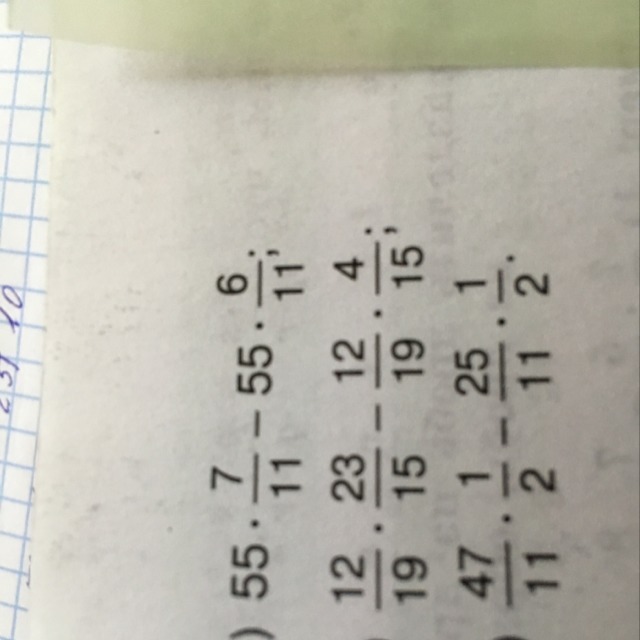 ) 55 · 7/11 − 55 · 6/11;
12/19 · 23/15 − 12/19 · 4/15;
47/11 · 1/2 − 25/11 · 1/2.